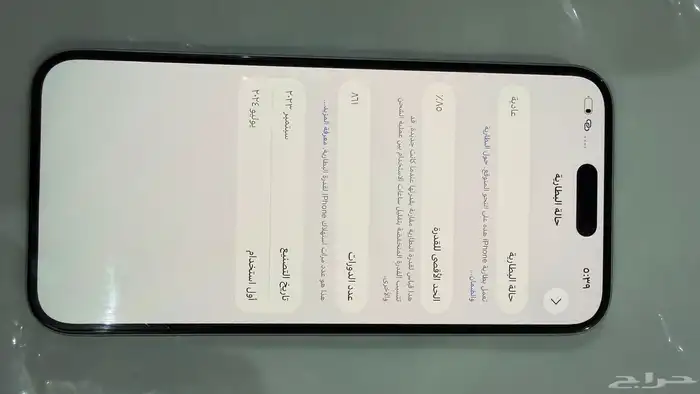 ٥:٣٩
حالة البطارية
حالة البطارية عادية
تعمل بطارية iPhone هذه على النحو المتوقع. حول البطارية
والضمان...
الحد الأقصى للقدرة ٪٨٥
هذا قياس لقدرة البطارية مقارنة بقدرتها عندما كانت جديدة. قد
تتسبب القدرة المنخفضة بتقليل ساعات الاستخدام بين عملية الشحن
والأخرى.
عدد الدورات ٨٦١
هذا هو عدد مرات استهلاك iPhone لقدرة البطارية. معرفة المزيد...
تاريخ التصنيع سبتمبر ٢٠٢٣
أول استخدام يوليو ٢٠٢٤
حراج